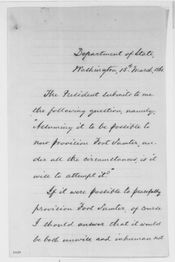 Department of State,
Washington, 15th March, 1861
The President submits to me
the following question, namely,
"Assuming it to be possible to
now provision Fort Sumter, un-
der all the circumstances, is it
wise to attempt it?"
If it were possible to peacefully
provision Fort Sumter, of course
I should answer that it would
be both unwise and inhuman not